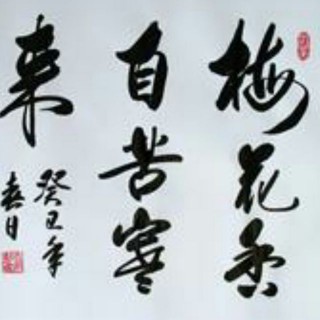 梅花香
自苦寒
来
癸丑年
春日